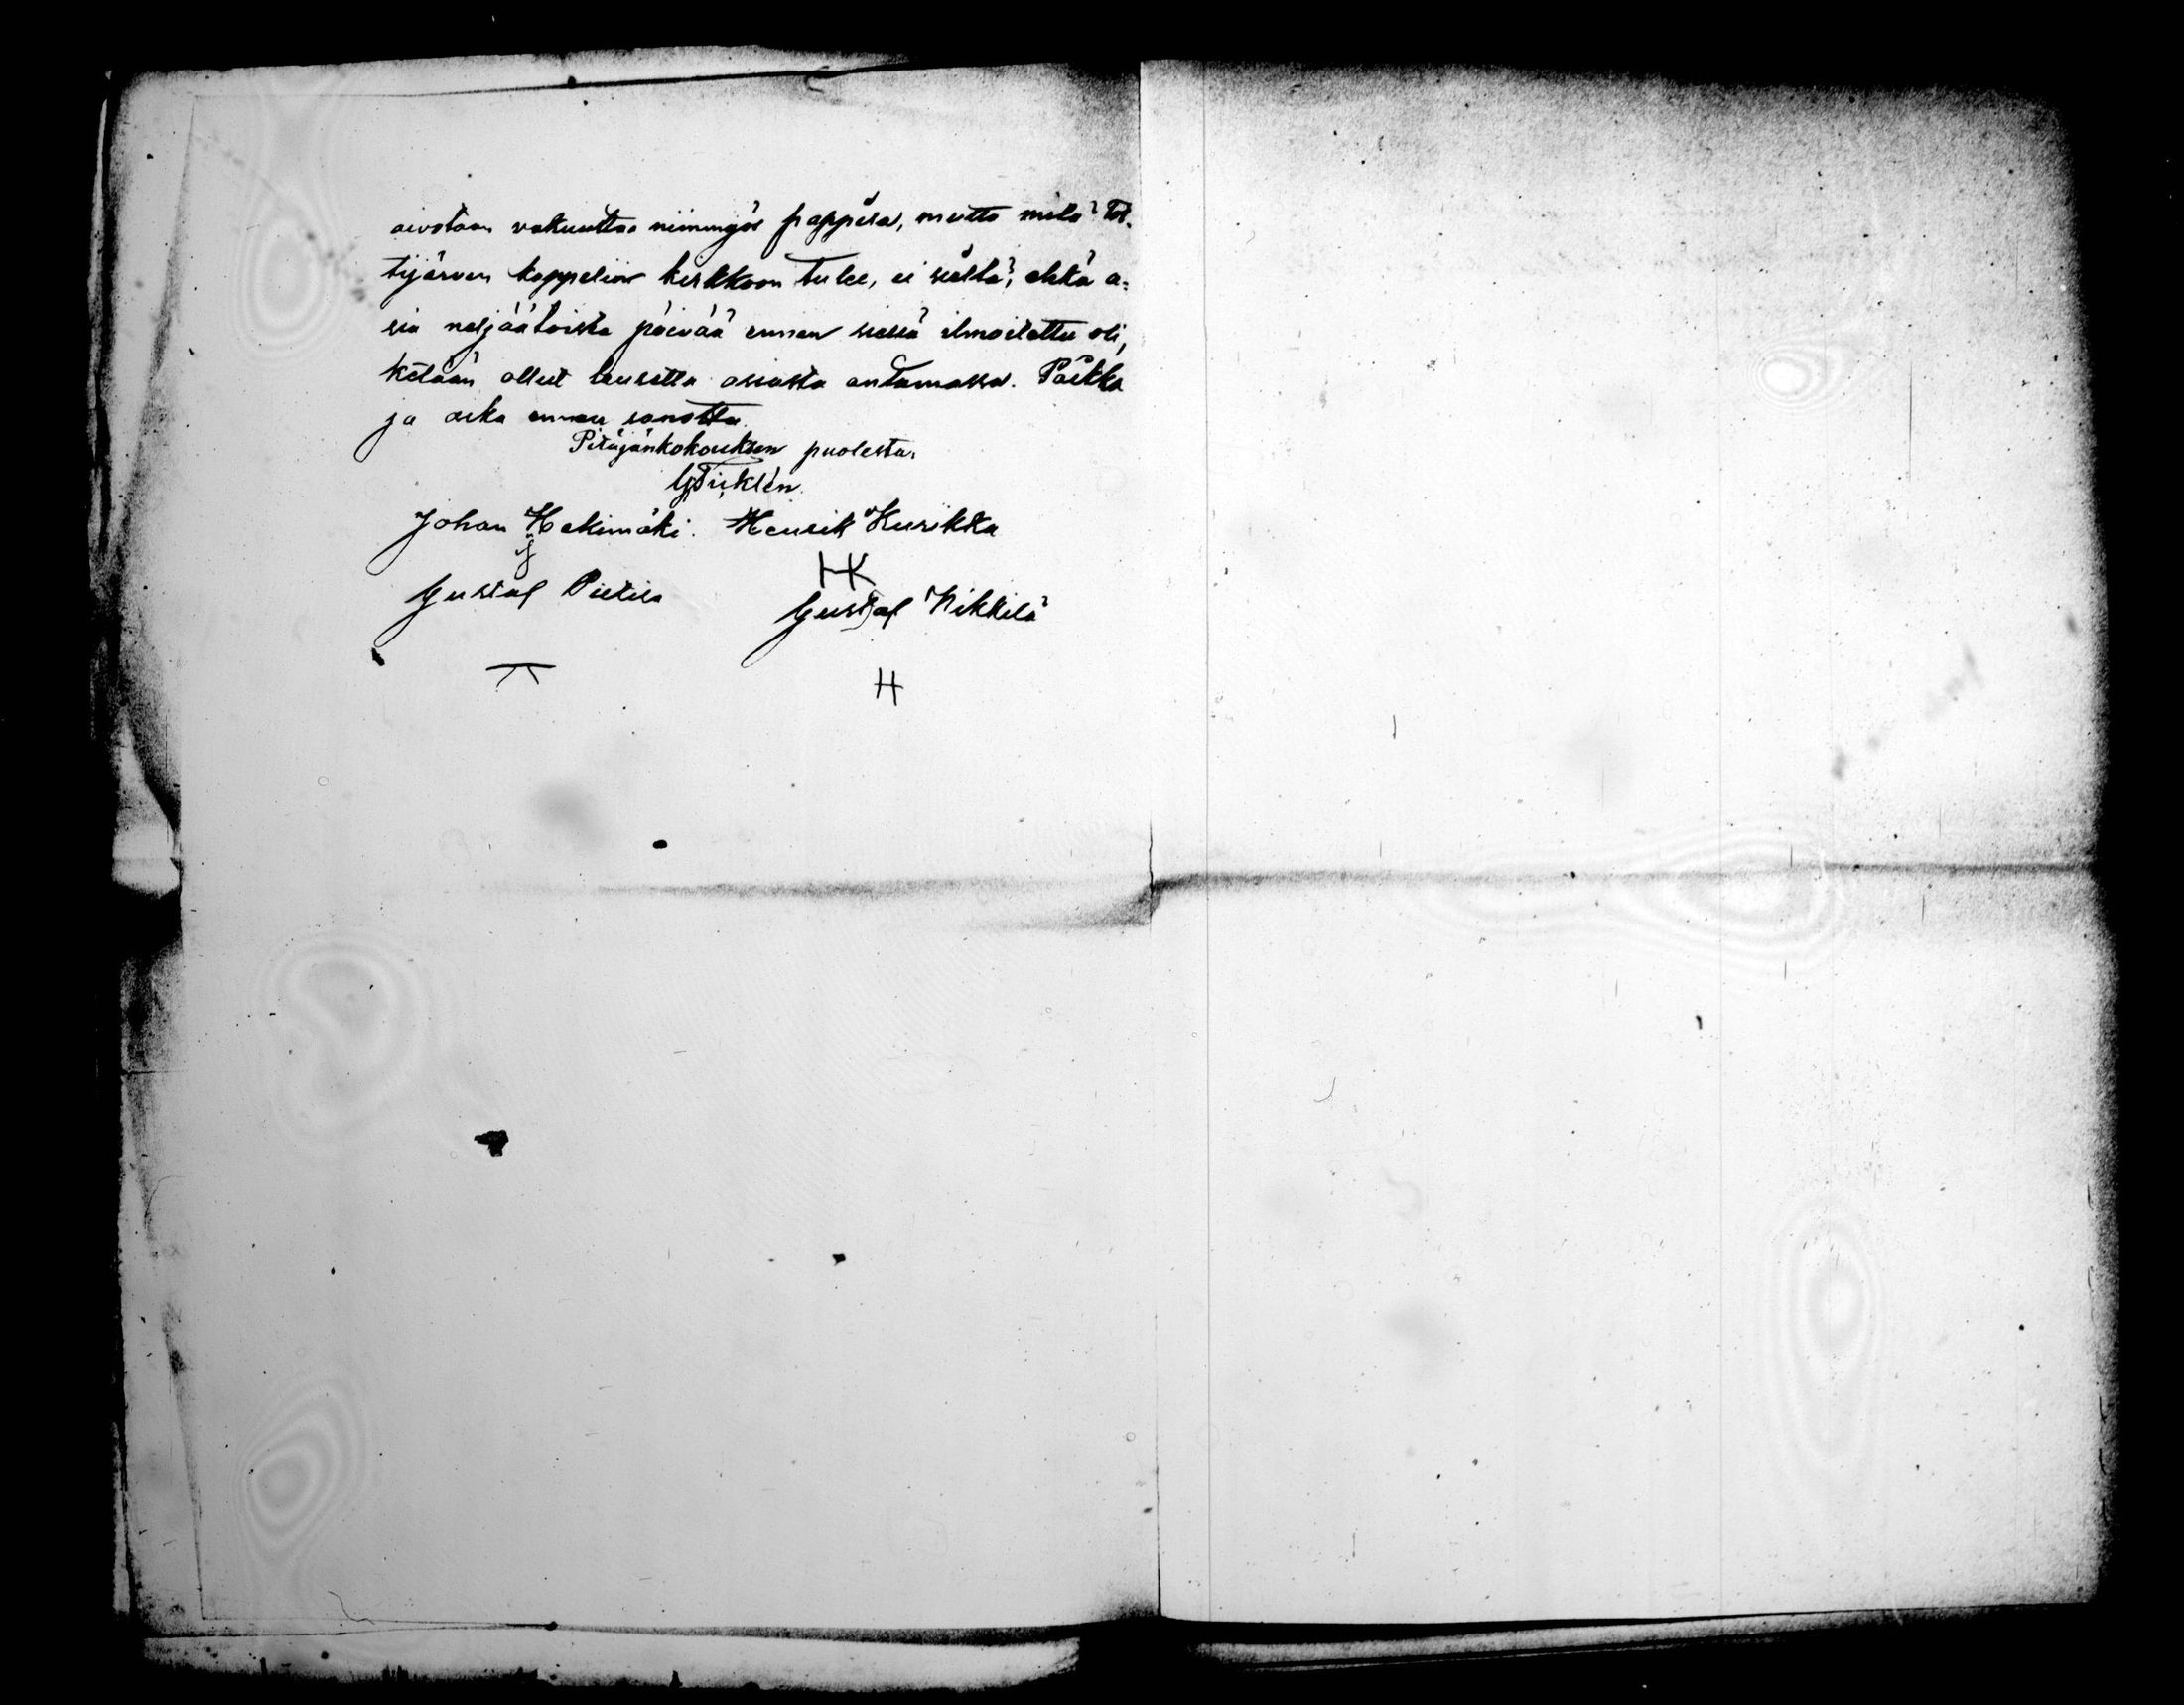 aivotaan vakuuttaa niinmyös pappila, mutta mitä Pot-
tijärven kappelin kirkkoon tulee, ei sieltä, ehkä a-
sia neljäätoista päivää ennen siellä ilmoitettu oli,
ketään ollut lausetta asiasta antamassa. Paikka
ja aika ennen sanottu.
Pitäjänkokouksen puolesta.
Johan Hakimäki. Henrik Kurikka
HK
Gustaf Pietila Gustaf Nikkilä
H